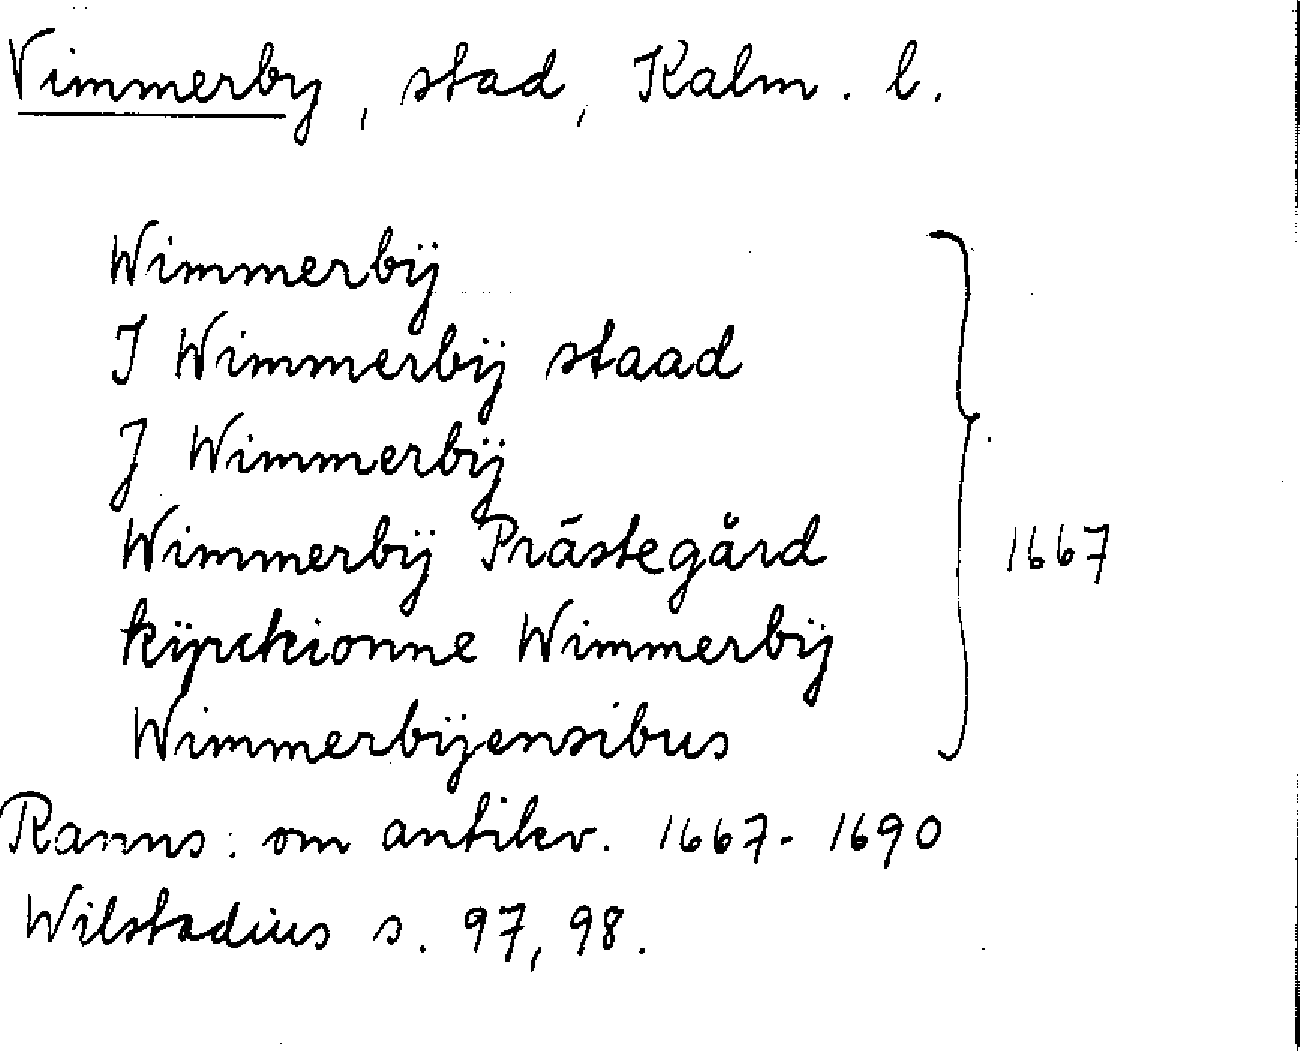 Vimmerby, stad, Kalm. l.
Wimmerbij
I Wimmerbij staad
J Wimmerbij
Wimmerbij Prästegård
kÿrckionne Wimmerbij
1667
Wimmerbijensibus
Ranns: om antikv. 1667-1690
Wilstadius s. 97, 98.